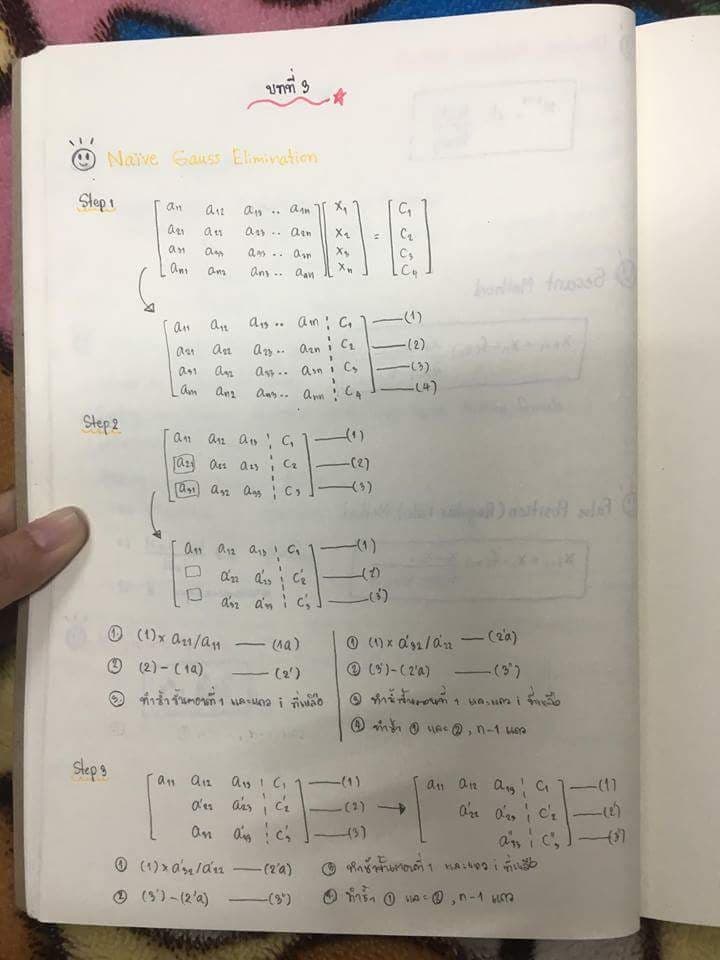 บทที่ 3
Naïve Gauss Elimination
Step 1
a11 a12 a13 .. a1n x1 c1
a21 a22 a23 .. a2n x2 = c2
a31 a32 a33 .. a3n x3 c3
an1 an2 an3 .. ann xn c4
a11 a12 a13 .. a1n c1 (1)
a21 a22 a23 .. a2n c2 (2)
a31 a32 a33 .. a3n c3 (3)
an1 an2 an3 .. ann c4 (4)
Step 2
a11 a12 a13 c1 (1)
a21 a22 a23 c2 (2)
a31 a32 a33 c3 (3)
a11 a12 a13 c1 (1)
a'22 a'23 c'2 (2')
a'32 a'33 c'3 (3')
① (1) x a21/a11 (1a)
② (2) - (1a) (2')
③ ทำซ้ำขั้นตอนที่ 1 และแถว i ที่เหลือ
① (1) x a'32/a'22 (2'a)
② (3') - (2'a) (3'')
③ ทำซ้ำขั้นตอนที่ 1 และแถว i ที่เหลือ
④ ทำซ้ำ ① และ ②, n-1 แถว
Step 3
a11 a12 a13 c1 (1)
a'22 a'23 c'2 (2)
a32 a'33 c'3 (3)
a11 a12 a13 c1 (1)
a'22 a'23 c'2 (2')
a''33 c''3 (3')
① (1) x a'32/a'22 (2'a)
② (3') - (2'a) (3'')
③ ทำซ้ำขั้นตอนที่ 1 และแถว i ที่เหลือ
④ ทำซ้ำ ① และ ②, n-1 แถว